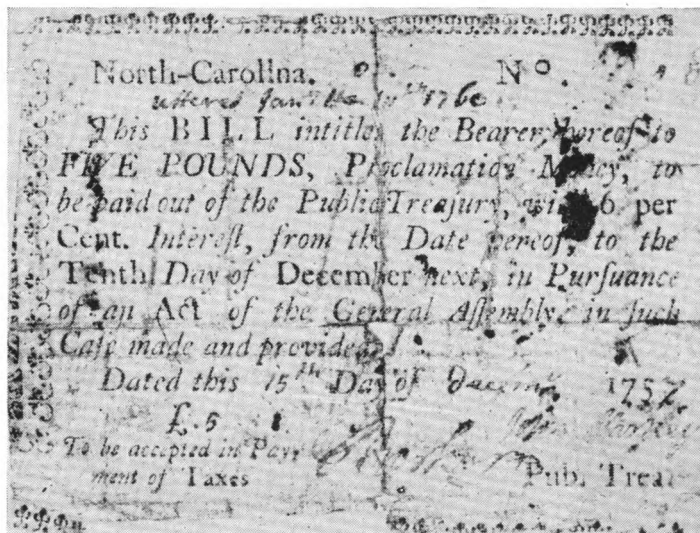 North-Carolina. No.
uttered Jan 1760
This BILL intitles the Bearer hereof to
FIVE POUNDS, Proclamation Money, to
be paid out of the Public Treaſury, with 6 per
Cent. Intereſt, from the Date hereof, to the
Tenth Day of December next, in Purſuance
of an Act of the General Aſſembly, in ſuch
Caſe made and provided.
Dated this 15th Day of 1757
£. 5
To be accepted in Pay-
ment of Taxes
Pub. Trea